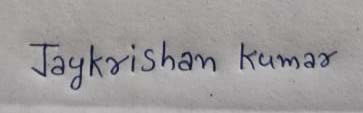 Jaykrishan Kumar